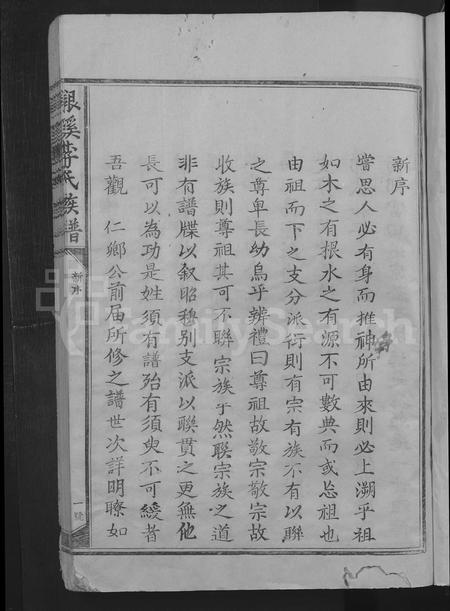 新序
嘗思人必有身而推神所由來則必上溯乎祖
如木之有根水之有源不可數典而或忘祖也
由祖而下之支分派衍則有宗有族不有以聯
之尊卑長幼烏乎辨禮曰尊祖故敬宗敬宗故
收族則尊祖其可不聯宗族乎然聯宗族之道
非有譜牒以叙昭穆別支派以聯貫之更無他
長可以為功是姓須有譜殆有須臾不可緩者
吾觀 仁鄉公前届所修之譜世次詳明瞭如
銀溪李氏族譜
新序
一號
FamilySearch